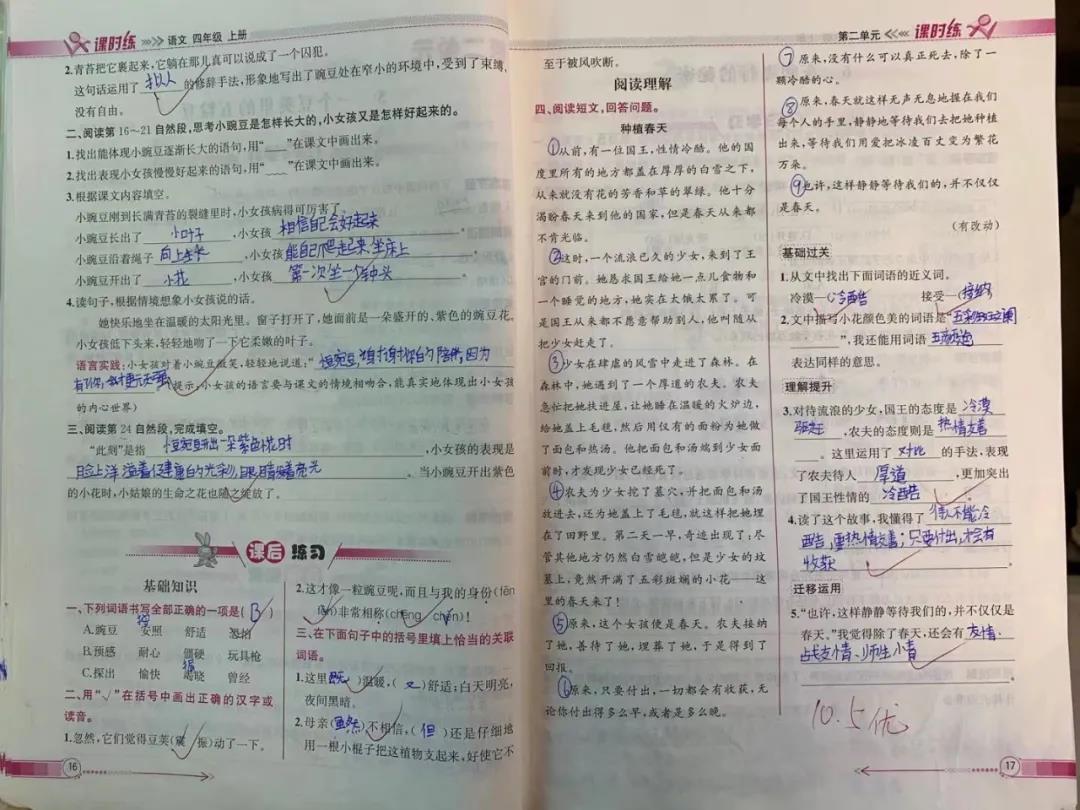 课时练 语文 四年级 上册
2.青苔把它裹起来,它躺在那儿真可以说成了一个囚犯。
这句话运用了 拟人 的修辞手法,形象地写出了豌豆处在窄小的环境中,受到了束缚,
没有自由。
二、阅读第16~21自然段,思考小豌豆是怎样长大的,小女孩又是怎样好起来的。
1.找出能体现小豌豆逐渐长大的语句,用“___”在课文中画出来。
2.找出表现小女孩慢慢好起来的语句,用“﹏﹏”在课文中画出来。
3.根据课文内容填空。
小豌豆刚到长满青苔的裂缝里时,小女孩病得可厉害了。
小豌豆长出了 小叶子 ,小女孩 相信自己会好起来 。
小豌豆沿着绳子 向上生长 ,小女孩 能自己爬起来坐床上 。
小豌豆开出了 小花 ,小女孩 第一次坐一个钟头 。
4.读句子,根据情境想象小女孩说的话。
她快乐地坐在温暖的太阳光里。窗子打开了,她面前是一朵盛开的、紫色的豌豆花。
小女孩低下头来,轻轻地吻了一下它柔嫩的叶子。
语言实践:小女孩对着小豌豆微笑,轻轻地说道:“ 谢谢你的陪伴,因为
有了你, (提示:小女孩的语言要与课文的情境相吻合,能真实地体现出小女孩
的内心世界)
三、阅读第24自然段,完成填空。
“此刻”是指 豌豆开出一朵紫色花时 ,小女孩的表现是
脸上洋溢着健康的光彩,眼睛发着亮光 。当小豌豆开出紫色
的小花时,小姑娘的生命之花也随之绽放了。
课后练习
基础知识
一、下列词语书写全部正确的一项是( B )
A.豌豆 安照 舒适 恐怕
B.预感 耐心 僵硬 玩具枪
C.探出 愉快 揭晓 曾经
二、用“√”在括号中画出正确的汉字或
读音。
1.忽然,它们觉得豆荚(震 振)动了一下。
2.这才像一粒豌豆呢,而且与我的身份(fēn
fèn)非常相称(chēng chèn)!
三、在下面句子中的括号里填上恰当的关联
词语。
1.这里( 既 )温暖,( 又 )舒适;白天明亮,
夜间黑暗。
2.母亲( 虽然 )不相信,( 但 )还是仔细地
用一根小棍子把这植物支起来,好使它不
16
第二单元 课时练
至于被风吹断。
阅读理解
四、阅读短文,回答问题。
种植春天
①从前,有一位国王,性情冷酷。他的国
度里所有的地方都盖在厚厚的白雪之下,
从来就没有花的芳香和草的翠绿。他十分
渴盼春天来到他的国家,但是春天从来都
不肯光临。
②这时,一个流浪已久的少女,来到了王
宫的门前。她恳求国王给她一点儿食物和
一个睡觉的地方,她实在太饿太累了。可
是国王从来都不愿意帮助别人,他叫随从
把少女赶走了。
③少女在肆虐的风雪中走进了森林。在
森林中,她遇到了一个厚道的农夫。农夫
急忙把她扶进屋,让她睡在温暖的火炉边,
给她盖上毛毯,然后用仅有的面粉为她做
了面包和热汤。他把面包和汤端到少女面
前时,才发现少女已经死了。
④农夫为少女挖了墓穴,并把面包和汤
放进去,还为她盖上了毛毯,就这样把她埋
在了田野里。第二天一早,奇迹出现了:尽
管其他地方仍然白雪皑皑,但是少女的坟
墓上,竟然开满了五彩斑斓的小花——这
里的春天来了!
⑤原来,这个女孩便是春天。农夫接纳
了她,善待了她,埋葬了她,于是得到了
回报。
⑥原来,只要付出,一切都会有收获,无
论你付出得多么早,或者是多么晚。
⑦原来,没有什么可以真正死去,除了一
颗冷酷的心。
⑧原来,春天就这样无声无息地握在我们
每个人的手里,静静地等待我们去把她种植
出来,等待我们用爱把冰凌百丈变为繁花
万朵。
⑨也许,这样静静等待我们的,并不仅仅
是春天。
(有改动)
基础过关
1.从文中找出下面词语的近义词。
冷漠—( 冷酷 ) 接受—( 接纳 )
2.文中描写小花颜色美的词语是“ 五彩斑斓
”,我还能用词语
表达同样的意思。
理解提升
3.对待流浪的少女,国王的态度是 冷漠
驱赶 ,农夫的态度则是 热情友善
。这里运用了 对比 的手法,表现
了农夫待人 厚道 ,更加突出
了国王性情的 冷酷 。
4.读了这个故事,我懂得了 做人不能冷
酷,要热情友善;只要付出,才会有
收获
迁移运用
5.“也许,这样静静等待我们的,并不仅仅是
春天。”我觉得除了春天,还会有 友情、
战友情、师生 。
10.5 优
17